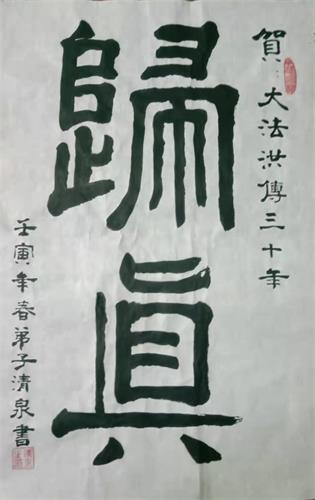 賀大法洪傳三十年
歸眞
壬寅年春弟子清泉書